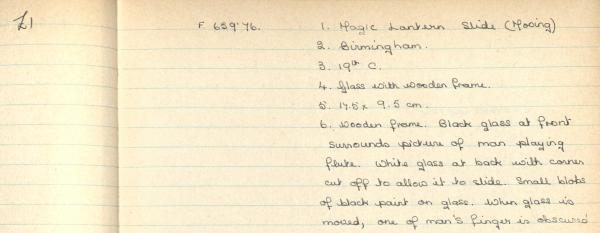 Z1
F 659'76.
1. Magic Lantern Slide (Moving)
2. Birmingham.
3. 19th C.
4. Glass with wooden frame.
5. 17.5 x 9.5 cm.
6. Wooden frame. Black glass at front
surrounds picture of man playing
flute. White glass at back with corner
cut off to allow it to slide. Small blobs
of black paint on glass. When glass is
moved, one of man's finger is obscured